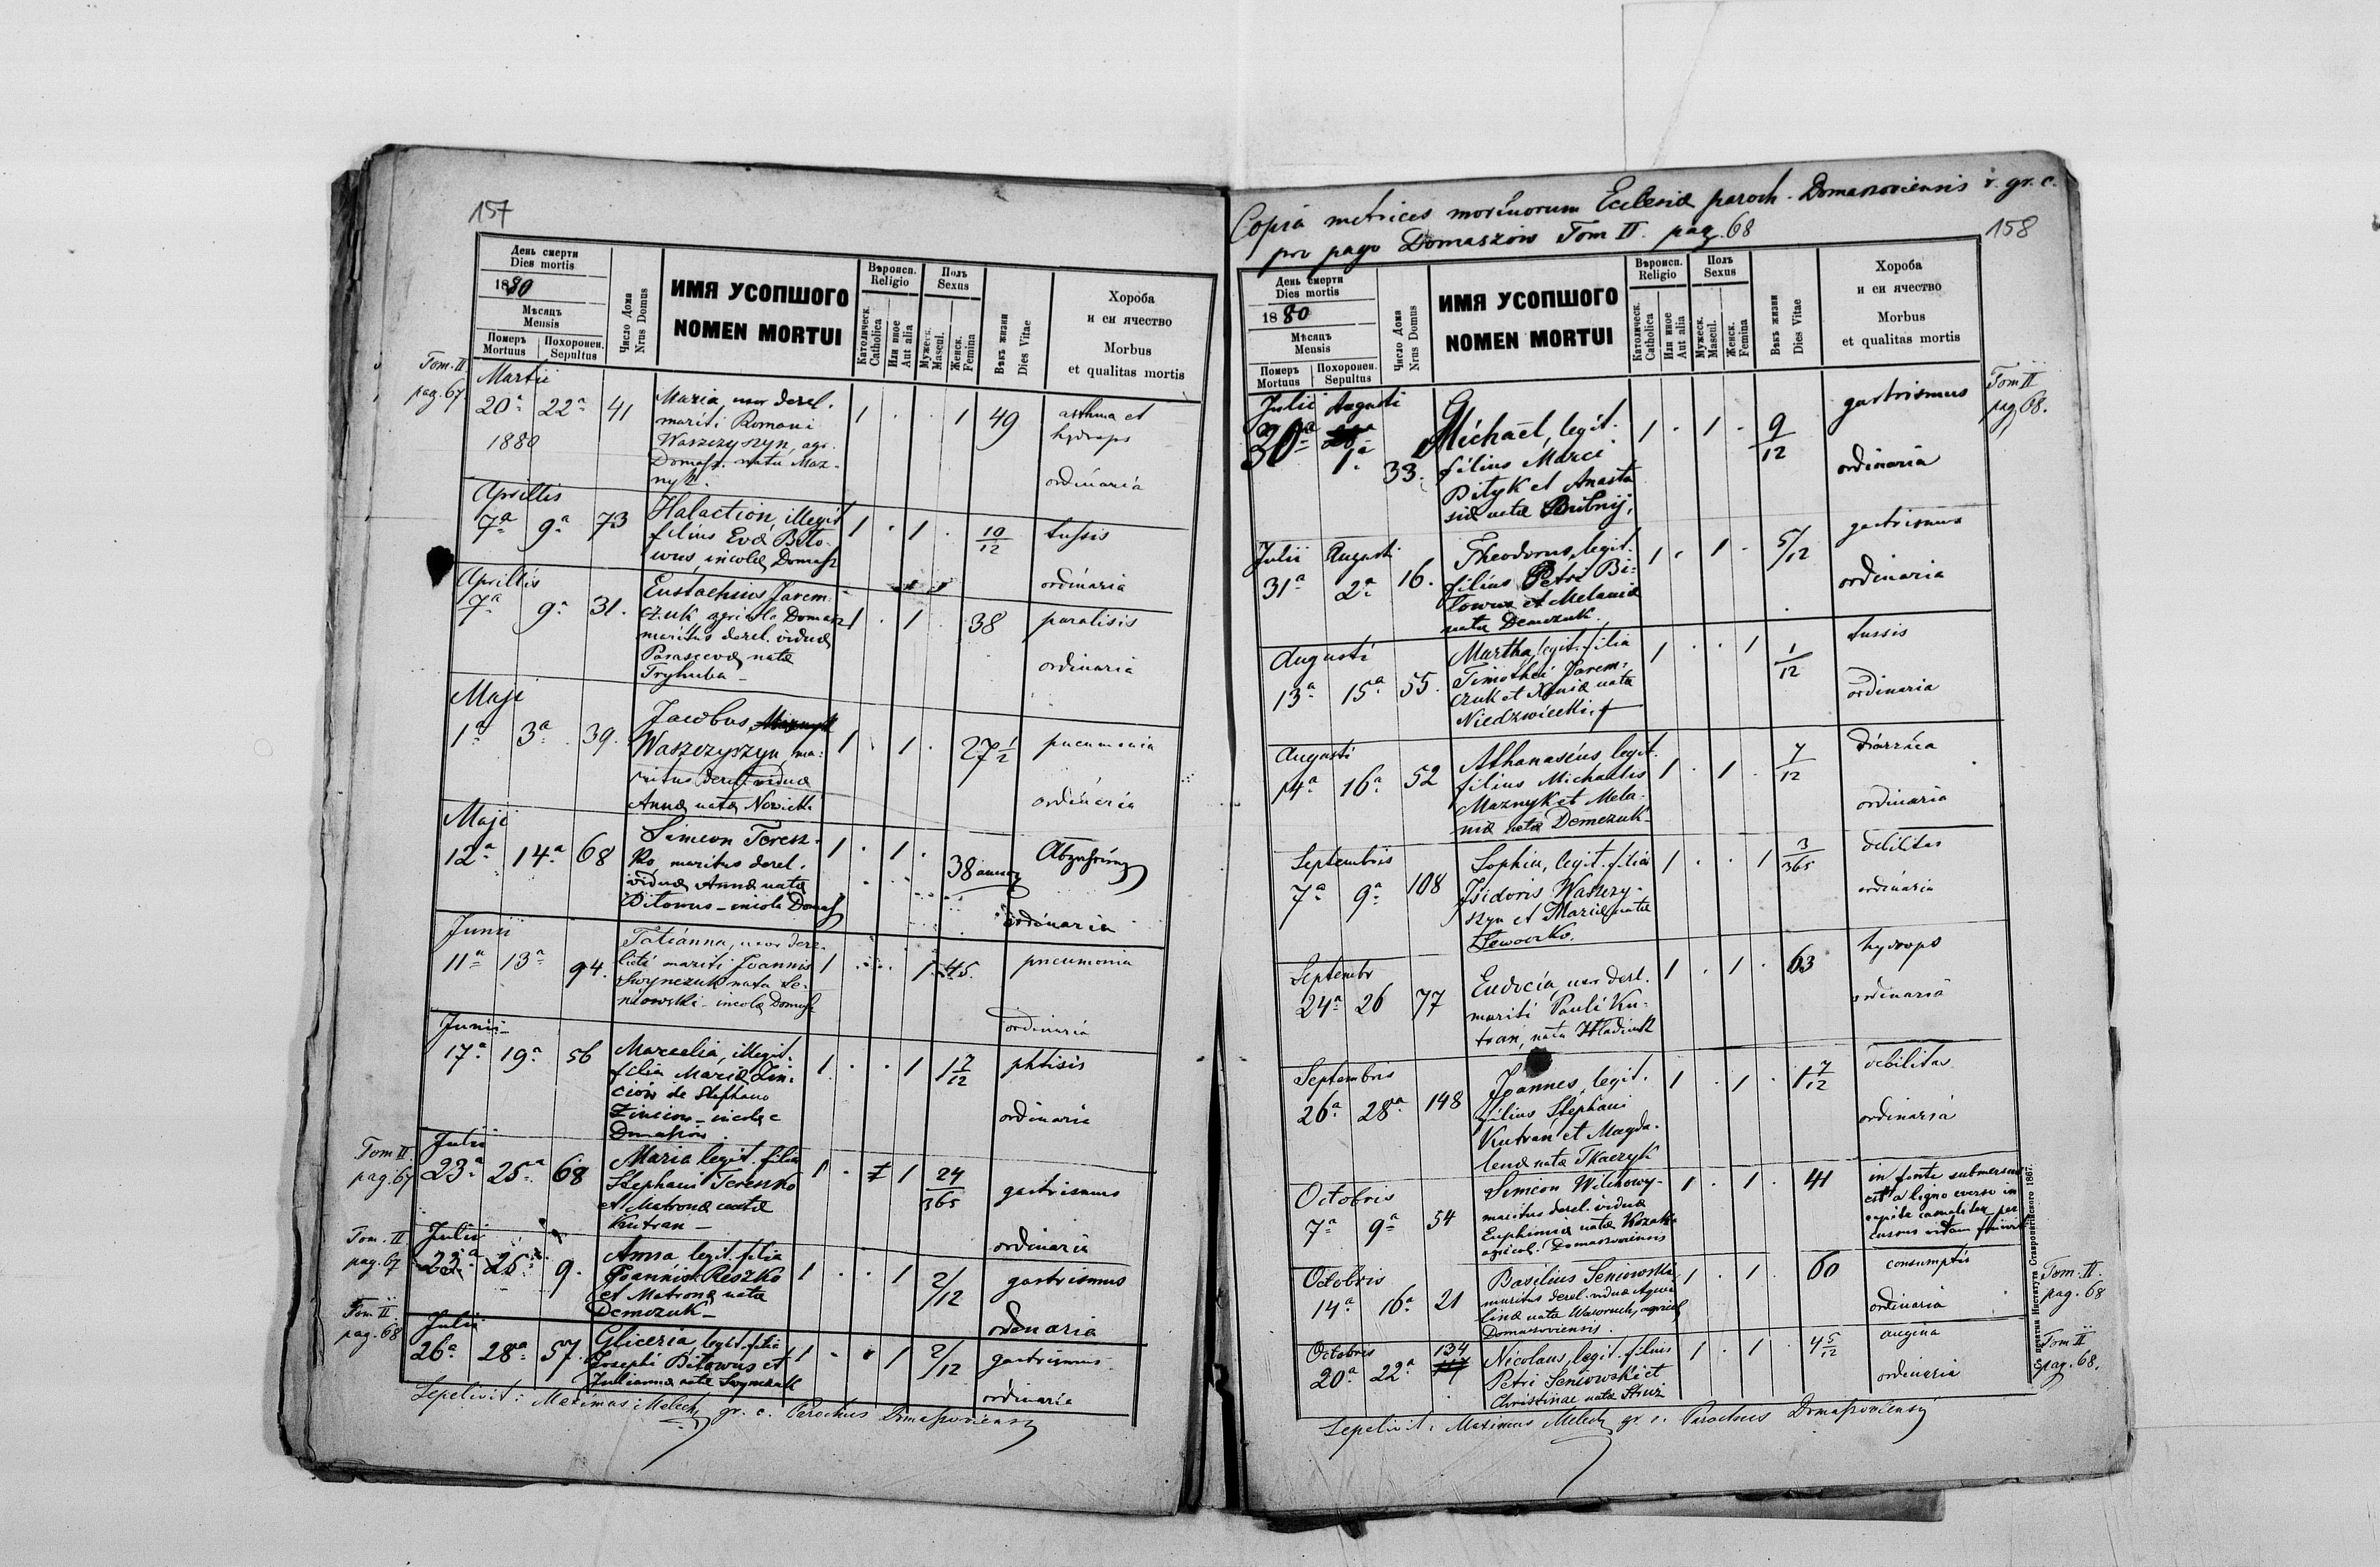 157
День смерти
Dies mortis
1880
Мѣсяцъ
Mensis
Померъ
Mortuus
Похоронен.
Sepultus
Число Дома
Nrus Domus
ИМЯ УСОПШОГО
NOMEN MORTUI
Вѣроисп.
Religio
Католическ.
Catholica
Или иное
Aut alia
Полъ
Sexus
Мужеск.
Mascul.
Женск.
Femina
Вѣкъ жизни
Dies Vitae
Хороба
и си ячество
Morbus
et qualitas mortis
Tom. II
pag. 67
Martii
20a 22a 41 Maria, uxor derel. 1 . . 1 49 asthma et
1880 mariti Romani hydrops
Waszczyszyn, agr.
Domasz. nata Maz-
nyk. ordinaria
Aprillis
7a 9a 73 Halaction, illegit 1 . 1 . 10/12 tussis
filius Eva Bito-
wus, incolæ Domasz ordinaria
Aprillis
7a 9a 31. Eustachius Jarem- 1 . 1 . 38 paralisis
czuk agricola Domasz
maritus derel. viduæ
Parascevæ natæ ordinaria
Tryhuba
Maji
1a 3a 39. Jacobus
Waszczyszyn, ma- 1 . 1 . 27 1/2 pneumonia
ritus derel. viduæ
Annæ natæ Nowicki ordinaria
Maji
12a 14a 68 Simeon Teresz- 1 . 1 . 38 annor
ko, maritus derel.
viduæ Annæ natæ
Bitowus – incola Domasz ordinaria
Junii
11a 13a 94. Tatianna, uxor dere- 1 . . 1 45. pneumonia
licti mariti Joannis
Swynczuk nata Se-
niowski – incolæ Domasz ordinaria
Junii
17a 19a 56 Marcelia, illegit. 1 . . 1 1 7/12 phtisis
filia Mariæ Zin-
ciów de Stephano
Zinciów – incolæ ordinaria
Domaszów
Tom II.
pag. 67
Julii
23a 25a 68 Maria legit. filia 1 . 1 24/365 gastrismus
Stephani Tereszko
et Matronæ natæ
Kutran – ordinaria
Tom. II.
pag. 67
Julii
23a 25a 9. Anna legit. filia 1 . . 1 2/12 gastrismus
Joannis Reszko
et Matronæ nata
Demczuk – ordinaria
Tom. II.
pag. 68
Julii
26a 28a 57. Gliceria, legit. filia 1 . . 1 2/12 gastrismus
Josephi Bitowus et
Julianna natæ Swynczuk ordinaria
Sepelivit: Maximus Melech gr. c. Parochus Domaszoviensis
Copia metrices mortuorum Ecclesiæ paroch. Domaszoviensis r. gr. c.
pro pago Domaszów Tom II. pag. 68
158
День смерти
Dies mortis
1880
Мѣсяцъ
Mensis
Померъ
Mortuus
Похоронен.
Sepultus
Число Дома
Nrus Domus
ИМЯ УСОПШОГО
NOMEN MORTUI
Вѣроисп.
Religio
Католическ.
Catholica
Или иное
Aut alia
Полъ
Sexus
Мужеск.
Mascul.
Женск.
Femina
Вѣкъ жизни
Dies Vitae
Хороба
и си ячество
Morbus
et qualitas mortis
Tom II
pag. 68.
Julii Augusti
30a 1a 33. Michaël, legit. 1 . 1 . 9/12 gastrismus
filius Marci
Bityk et Anasta
siæ natæ ordinaria
Julii Augusti
31a 2a 16. Theodorus, legit. 1 . 1 . 5/12 gastrismus
filius Petri Bi-
towus et Melaniæ
natæ Demczuk. ordinaria
Augusti
13a 15a 55. Martha, legit. filia 1 . . 1 1/12 tussis
Timothei Jarem-
czuk et Xeniæ nata
Niedzwiecki. ordinaria
Augusti
14a 16a 52 Athanasius, legit. 1 . 1 . 7/12 diarrhea
filius Michaelis
Maznyk et Mela-
niæ natæ Demczuk ordinaria
Septembris
7a 9a 108 Sophia, legit. filia 1 . . 1 3/365 debilitas
Isidoris Waszczy-
szyn et Mariæ natæ ordinaria
Septembr
24a 26 77 Eudocia, uxor derel. 1 . 1 . 63 hydrops
mariti Pauli Ku-
tran, nata Hladiuk ordinaria
Septembris
26a 28a 148 Joannes, legit. 1 . 1 . 1 7/12 debilitas
filius Stephani
Kutran et Magda-
lenæ natæ Tkaczyk ordinaria
Octobris
7a 9a 54 Simeon Witkowy- 1 . 1 . 41 in fonte submersus
maritus derel. viduæ est a ligno everso in
Euphimiæ natæ Kozak capite casualiter per
agricol. Domaszoviensis cussus vitam finivit
Octobris
14a 16a 21 Basilius Seniowski 1 . 1 . 60 consumptis
maritus derel. viduæ
linæ nata agricol ordinaria
Domaszoviensis.
Tom. II.
pag. 68
Octobris
20a 22a 134 Nicolaus, legit. filius 1 . 1 . 4 5/12 angina
Petri Seniowski et
Christinae natæ ordinaria
Tom II
pag. 68.
Sepelivit: Maximus Melech gr. c. Parochus Domaszoviensis
печатня Института Ставропигійского 1867.